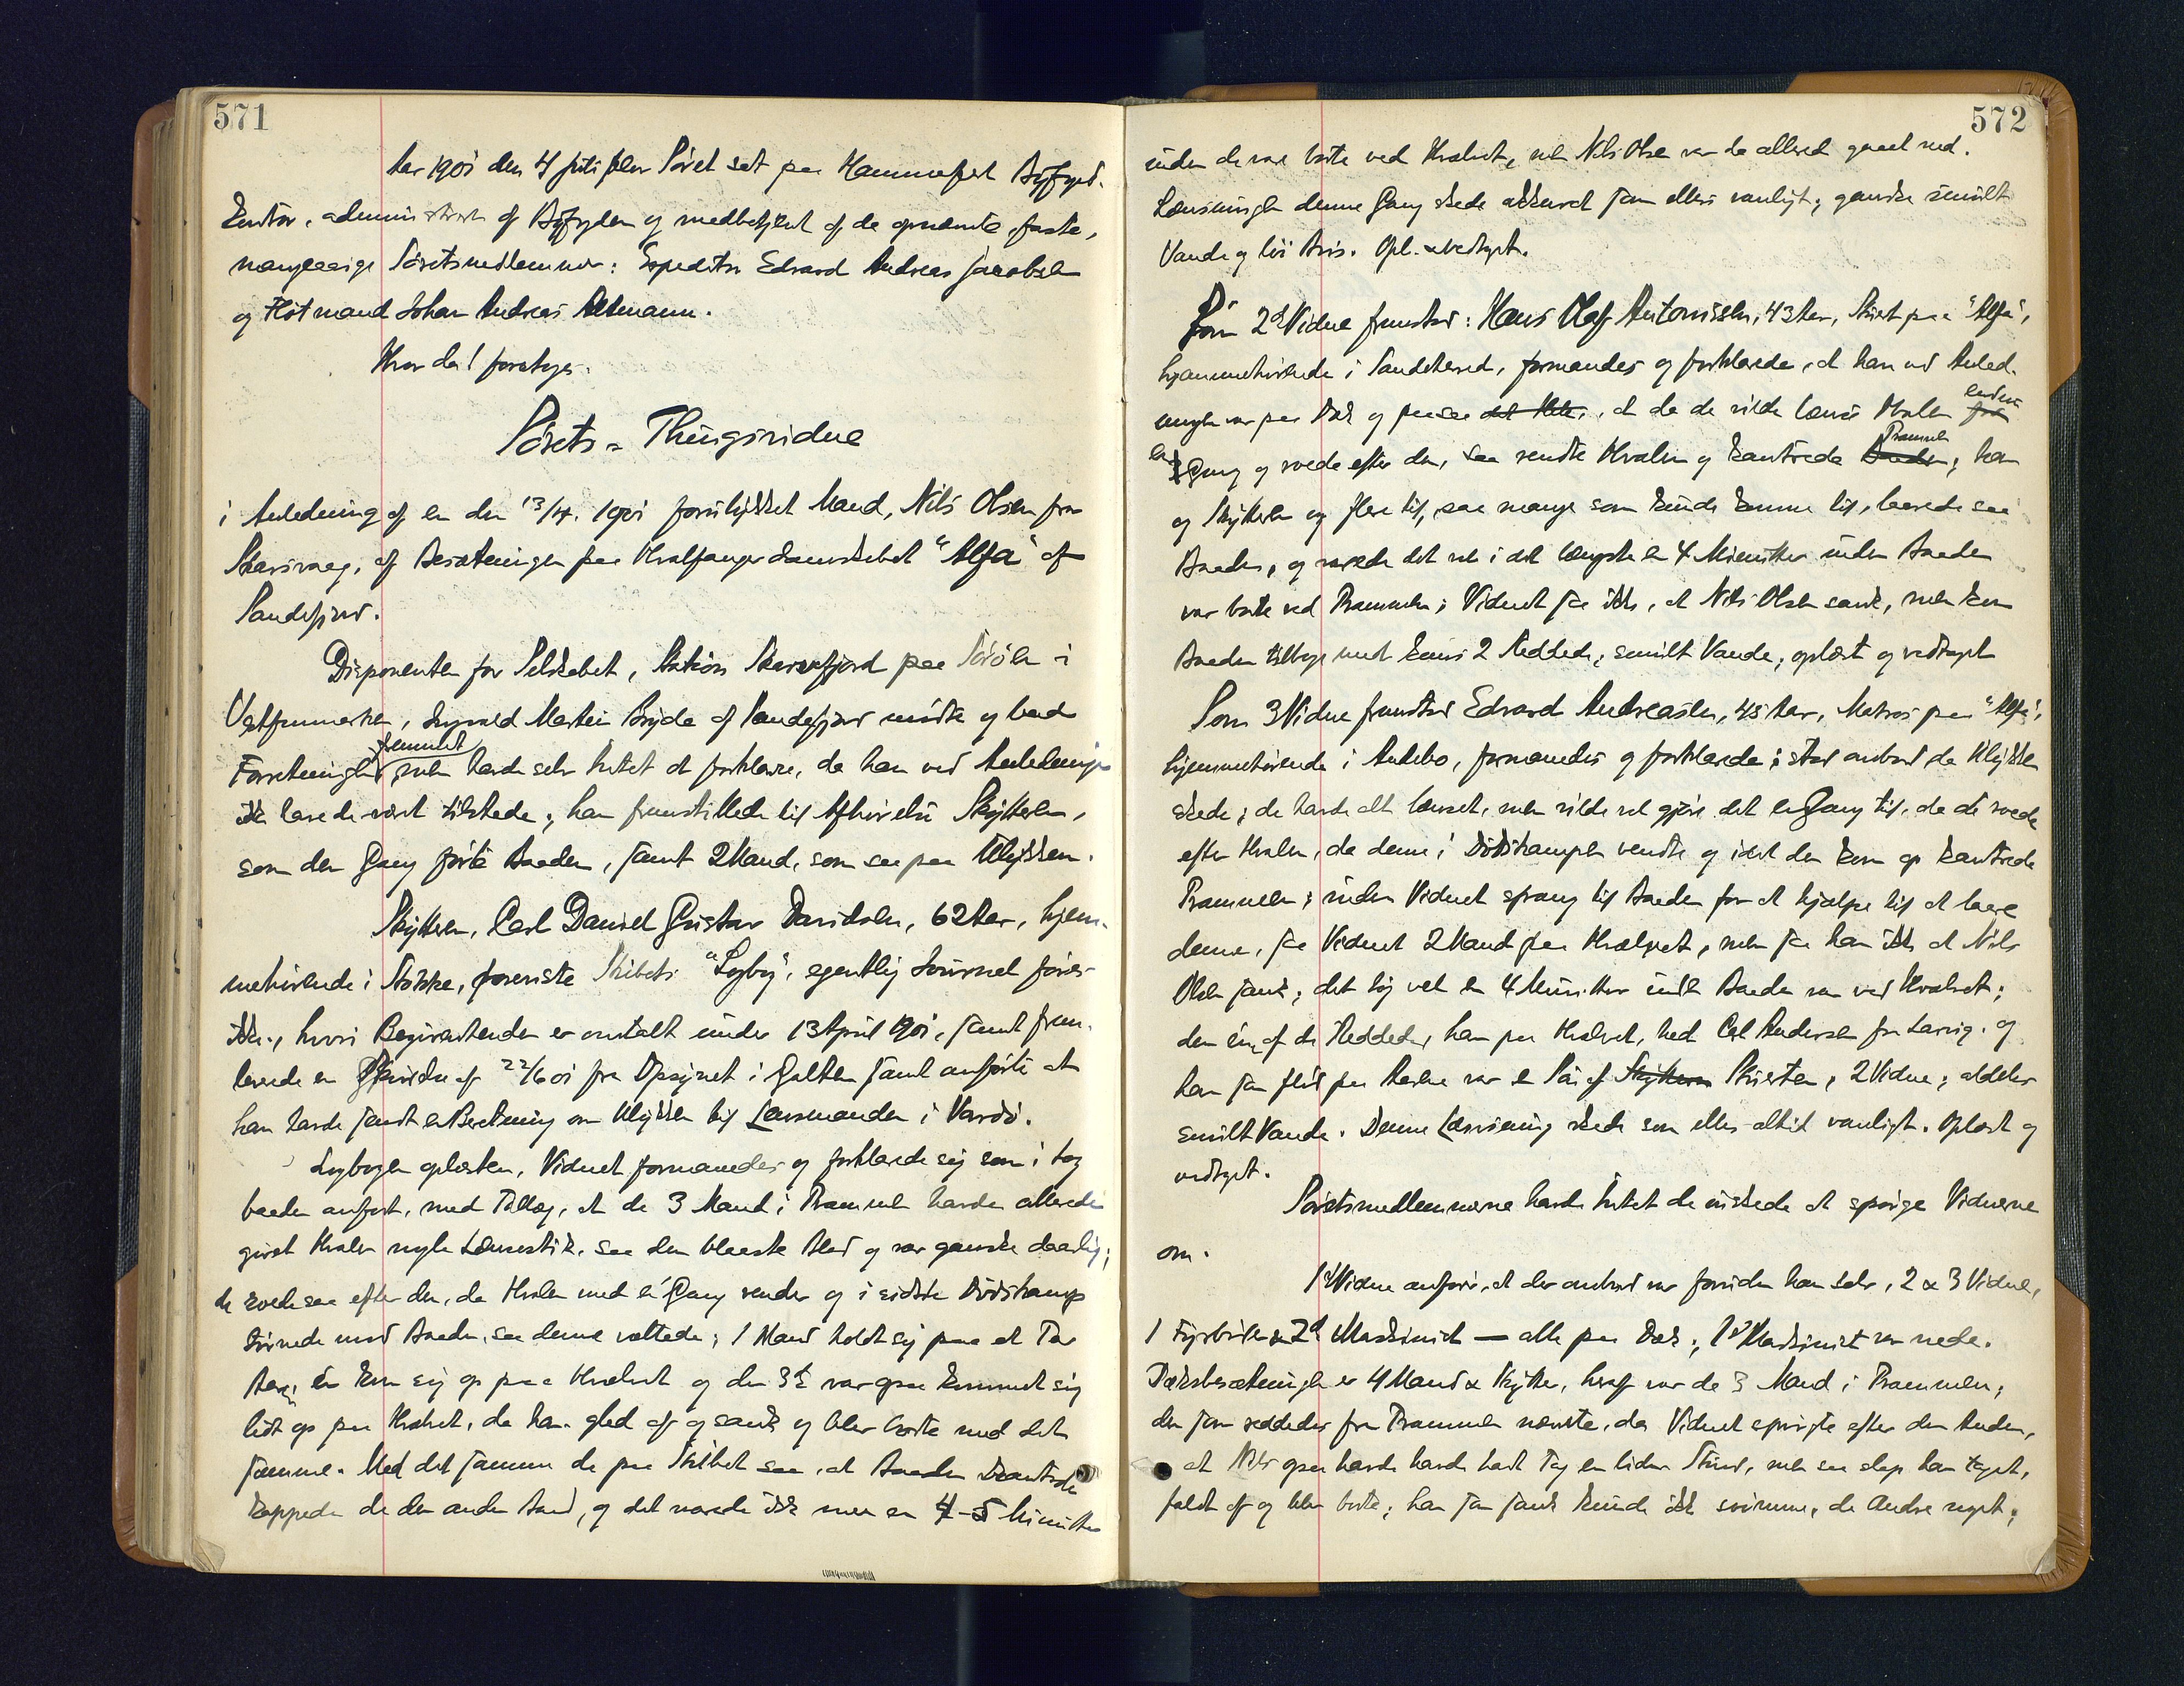 571
Aar 1901 den 4 Juli blev Søret sat paa Hammerfest Byfogd-
kontor, administreret af Byfogden og medbetjent af de opnævnte, faste,
mangeaarige Søretsmedlemmer: Expeditør Edvard Andreas Jacobsen
og Flötmand Johan Andreas Altmann.
Hvor da! foretoges.
Sørets- Thingsvidne
i Anledning af en den 13/4. 1901 forulykket Mand, Nils Olsen fra
Skarsvaag, af Besætningen paa Hvalfangerdampskibet "Alfa" af
Sandefjord.
Disponenten for Selskabet, Station Skarvfjord paa Sørøen i
Vestfinmarken, Ingvald Martin Bryde af Sandefjord mødte og bad
Forretningen fremmet men havde selv Intet at forklare, da han ved Anledningen
ikke havde været tilstede; han fremstillede til Afhørelse Skytteren,
som den Gang førte Baaden, samt 2 Mand, som saa paa Ulykken.
Skytteren, Carl Daniel Gustav Davidsen, 62 Aar, hjem-
mehørende i Stokke, foreviste Skibets "Logbog", egentlig Journal føres
ikke, hvori Begivenheden er omtalt under 13 April 1901, samt frem-
leverede en af 22/6 01 fra Opsynet i Galten samt anførte at
han havde sendt en Beretning om Ulykken til Lensmanden i Vardø.
Logbogen oplæstes, Vidnet formanedes og forklarede sig som i Log
bogen anført, med Tillæg, at de 3 Mand i Prammen havde allerede
givet Hvalen nogle Lænsestik, saa den blæste Blod og var ganske daarlig;
de roede saa efter den, da Hvalen med én Gang vender og i sidste Dødskamp
tørnede mod Baaden, saa denne væltede; 1 Mand holdt sig paa et Par
Aarer, én kom sig op paa Hvælvet og den 3die var ogsaa kommet sig
lidt op paa Hvælvet, da han gled af og sank og blev borte med det
samme. Med det samme de paa Skibet saa, at Baaden kantrede
kappede de den anden Baad, og det varede ikke mer en 4-5 Minutter
572
inden de var borte ved Hvælvet, men Nils Olsen var da allerede gaaet ned.
Lænsningen denne Gang skede akkurat som ellers vanligt; ganske smult
Vande og lös Bris. Opl. & vedtaget.
Som 2det Vidne fremstod: Hans Olaf Antonissen, 43 Aar, Stuert paa "Alfa",
hjemmehørende i Sandeherred, formanedes og forklarede, at han ved Anled-
ningen var paa Dæk og paasaa det Hele, at da de vilde lænse Hvalen endnu
en Gang og roede efter den, saa vendte Hvalen og kantrede Prammen; han
og Skytteren og flere til, saa mange som kunde komme til, laarede saa
Baaden, og varede det vel i det længste en 4 Minutter inden Baaden
var borte ved Prammen; Vidnet saa ikke, at Nils Olsen sank, men kom
Baaden tilbage med kuns 2 Reddede; smult Vande; oplæst og vedtaget
Som 3 Vidne fremstod Edvard Andreassen, 45 Aar, Matros paa "Alfa",
hjemmehørende i Andebo, formanedes og forklarede; stod ombord da Ulykken
skede; de havde alt lænset, men vilde vel gjøre det en Gang til, da de roede
efter Hvalen, da denne i Dødskampen vendte og idet den kom op kantrede
Prammen; inden Vidnet sprang til Baaden for at hjælpe til at laare
denne, saa Vidnet 2 Mand paa Hvælvet, men saa han ikke at Nils
Olsen sank; det tog vel en 4 Minutter inden Baaden var ved Hvælvet;
den ene af de Reddede, han paa Hvælvet, hed Carl Andersen fra Larvig, og
han som flöd paa Aarene var en Søn af Skytteren Stuerten, 2 Vidne; aldeles
smult Vande. Denne Lænsning skede som ellers altid vanligt. Oplæst og
vedtaget.
Søretsmedlemmerne havde Intet de ønskede at spørge Vidnerne
om.
1st Vidne anførte, at der ombord var foruden ham selv, 2 & 3 Vidne,
1 Fyrbøder & 2d Maskinist — alle paa Dæk; 1st Maskinist var nede.
Dæksbesætningen er 4 Mand & Skytter, hvoraf var de 3 Mand i Prammen;
den som reddedes fra Prammen nævnte, da Vidnet spørgte efter den Anden,
at Nils ogsaa havde havde havt Tag en liden Stund, men saa slap han taget,
faldt af og blev borte; han som sank kunde ikke svømme, de Andre noget;